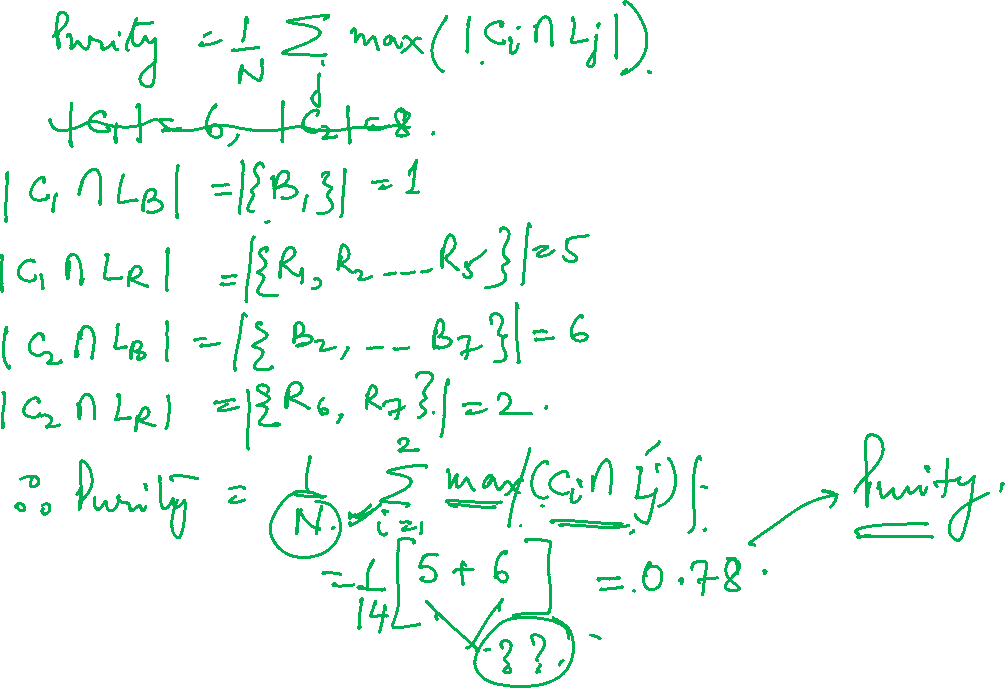 Purity = 1/N Σ_j max(|C_i ∩ L_j|).
|C_1| = 6, |C_2| = 8.
|C_1 ∩ L_B| = |{B_1}| = 1
|C_1 ∩ L_R| = |{R_1, R_2 ---- R_5}| = 5
|C_2 ∩ L_B| = |{B_2, -- B_7}| = 6
|C_2 ∩ L_R| = |{R_6, R_7}| = 2.
∴ Purity = 1/N. Σ_{i=1}^{2} max|(C_i ∩ L_j)|. Purity.
= 1/14 [5 + 6] = 0.78.
??.